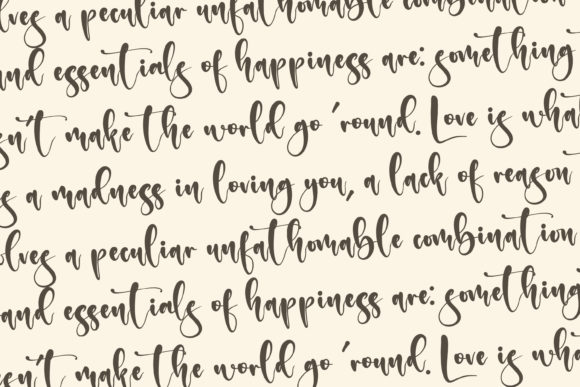 olves a peculiar unfathomable combination
and essentials of happiness are: something
sn't make the world go 'round. Love is what
s a madness in loving you, a lack of reason
olves a peculiar unfathomable combination
and essentials of happiness are: something
esn't make the world go 'round. Love is what